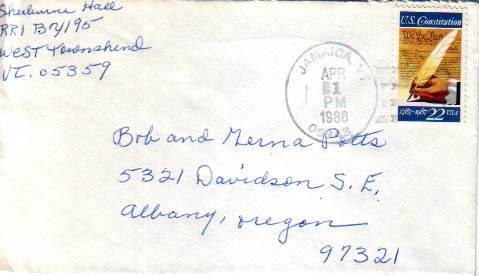 Hall
RR1 Box 195
West Townshend
VT. 05359
JAMAICA, VT
APR
1
PM
1988
U.S. Constitution
We the People
1787-1987 22 USA
Bob and Merna Potts
5321 Davidson S.E.
Albany, Oregon
97321